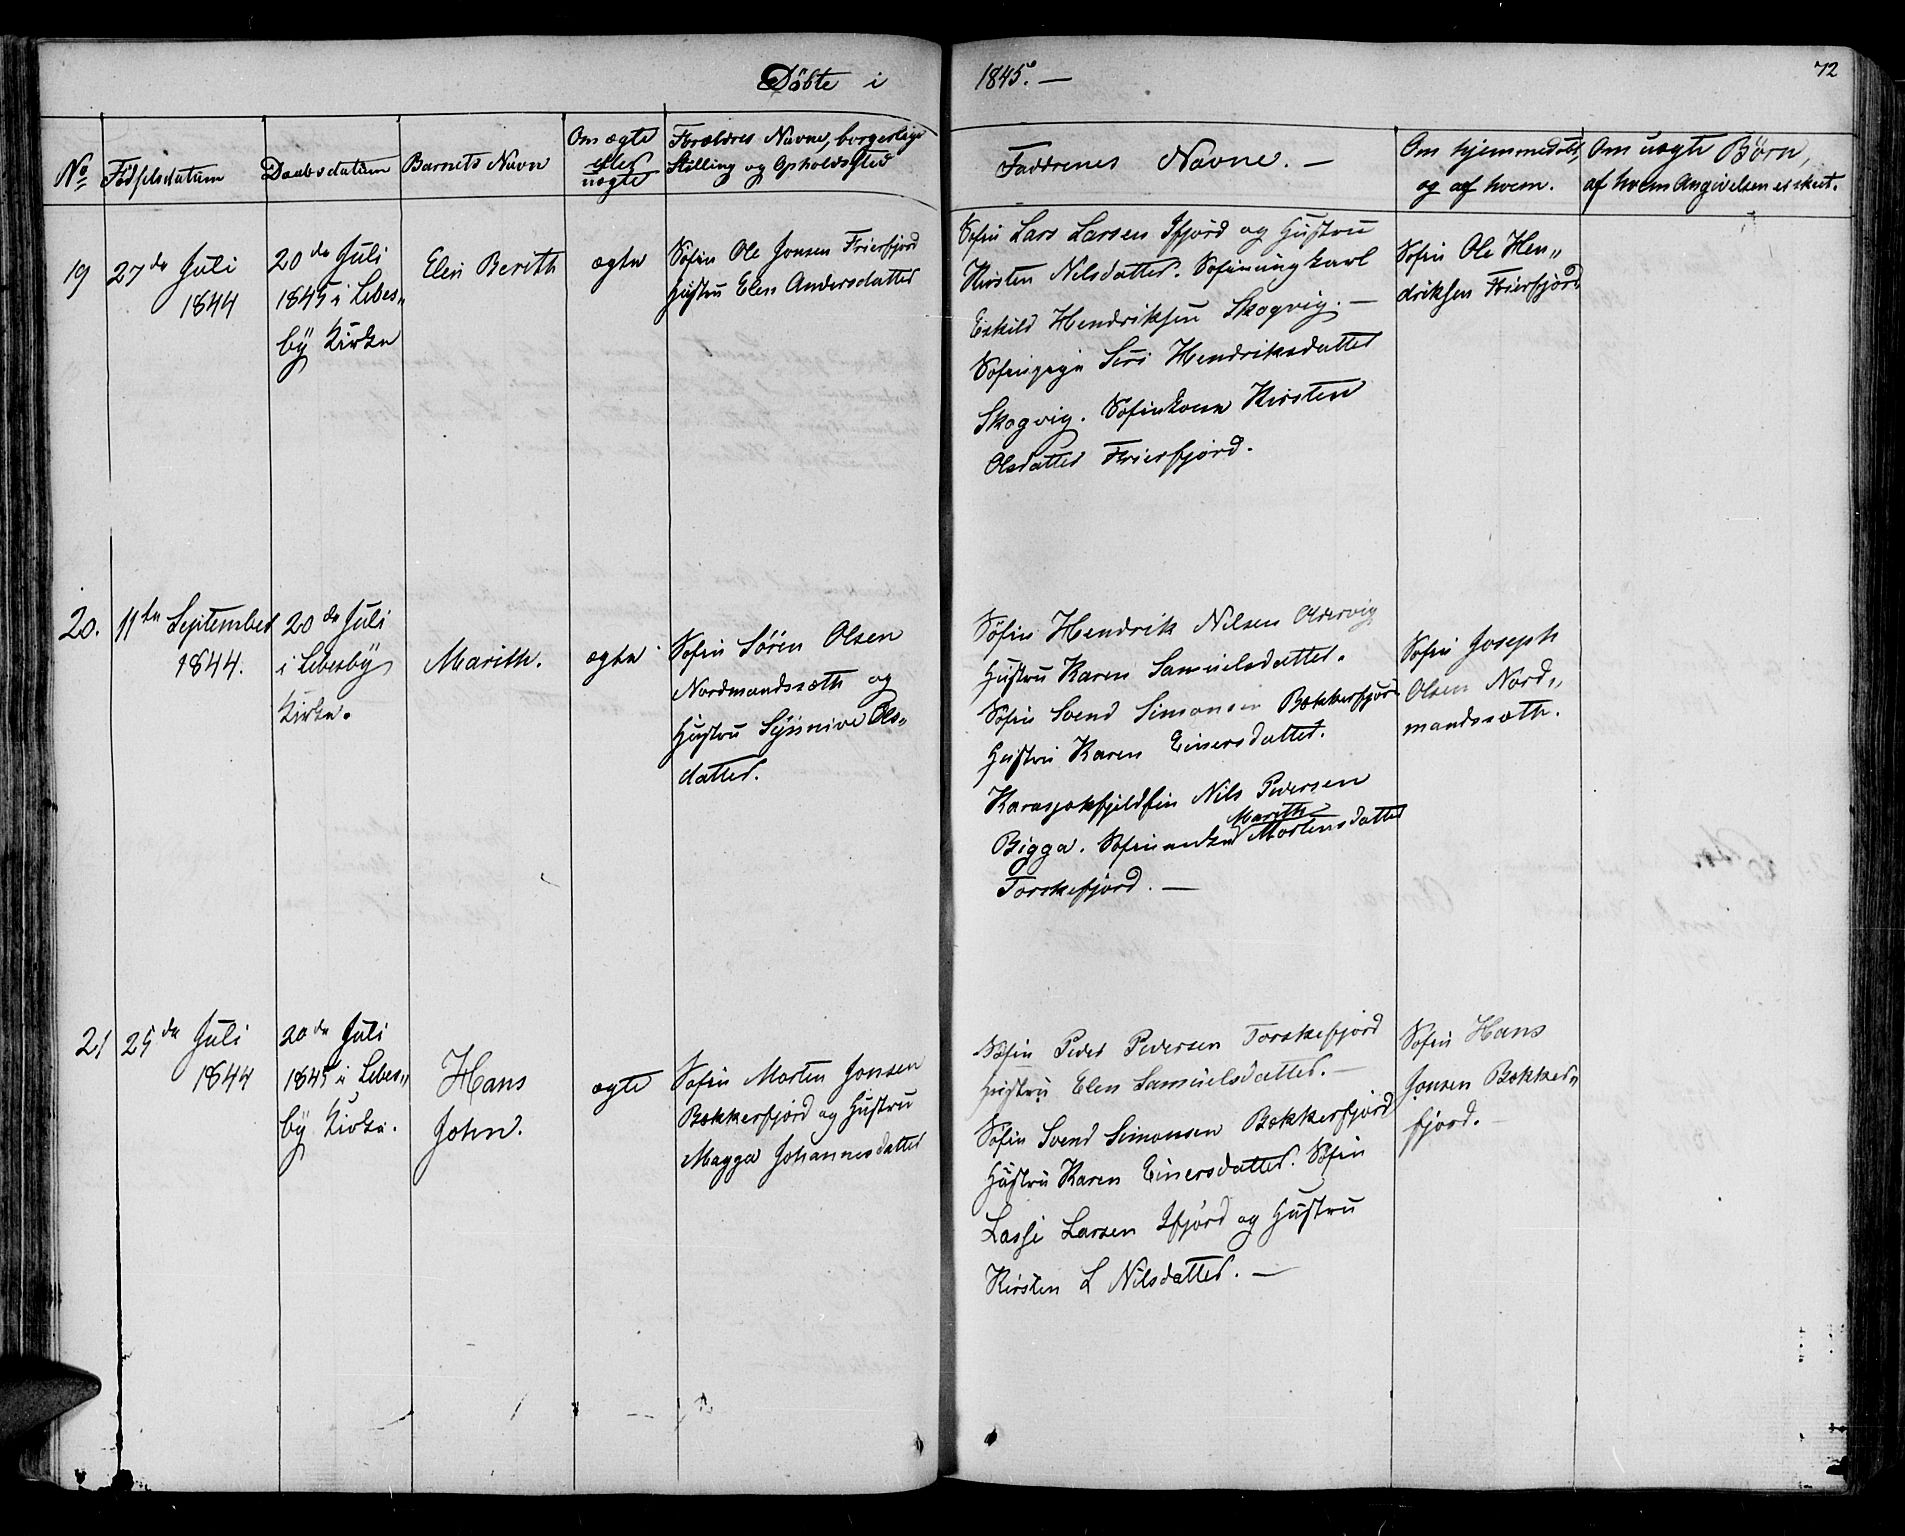 Døbte i 1845. —
72
No
Fødselsdatum
Daabsdatum
Barnets Navn
Om ægte
eller
uægte
Forældres Navne, borgerlige
Stilling og Opholdssted
Faddrenes Navne. —
Om hjemmedøbt,
og af hvem.
Om uægte Børn,
af hvem Angivelsen er skeet.
19
27de Juli
1844
20de Juli
1845 i Lebes„
by Kirke
Elen Berith
ægte
Søfin Ole Jonsen Frierfjord
Hustru Elen Andersdatter
Søfin Lars Larsen Ifjord og Hustru
Kirsten Nilsdatter. Søfinungkarl
Eskild Hendriksen Skogvig. —
Søfinpige Siri Hendriksdatter
Skogvig. Søfinkone Kirsten
Olsdatter Frierfjord.
Søfin Ole Hen„
driksen Frierfjord
20.
11te September
1844.
20de Juli
i Lebesby
Kirke.
Marith.
ægte
Søfin Søren Olsen
Nordmandssæth og
Hustru Synnive Ols„
datter.
Søfin Hendrik Nilsen Oldervig
Hustru Karen Samuelsdatter.
Søfin Svend Simonsen Bekkerfjord
Hustru Karen Einersdatter.
Karasjokfjeldfin Nils Pedersen
Bigga. Søfinenke Marith Mortensdatter
Torskefjord. —
Søfin Joseph
Olsen Nord„
mandssæth.
21
25de Juli
1844
20de Juli
1845 i Lebes„
by Kirke.
Hans
John.
ægte
Søfin Morten Jonsen
Bekkerfjord og Hustru
Magga Johannesdatter
Søfin Peder Pedersen Torskefjord
Hustru Elen Samuelsdatter. —
Søfin Svend Simonsen Bekkerfjord
Hustru Karen Einersdatter. Søfin
Lasse Larsen Ifjord og Hustru
Kirsten L Nilsdatter. —
Søfin Hans
Jonsen Bekker„
fjord.